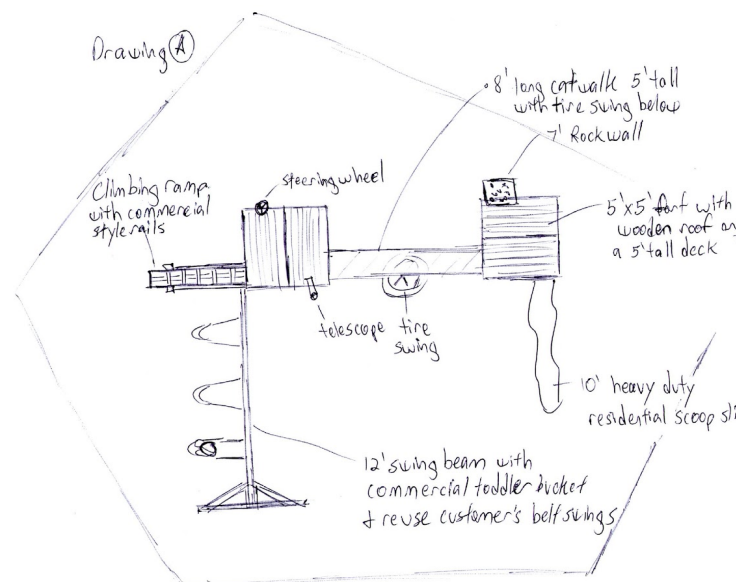 Drawing A
8' long catwalk 5' tall
with tire swing below
7' Rockwall
steering wheel
Climbing ramp
with commercial
style rails
5'x5' fort with
wooden roof an
a 5' tall deck
telescope
tire
swing
10' heavy duty
residential scoop sli
12' swing beam with
commercial toddler bucket
+ reuse customer's belt swings